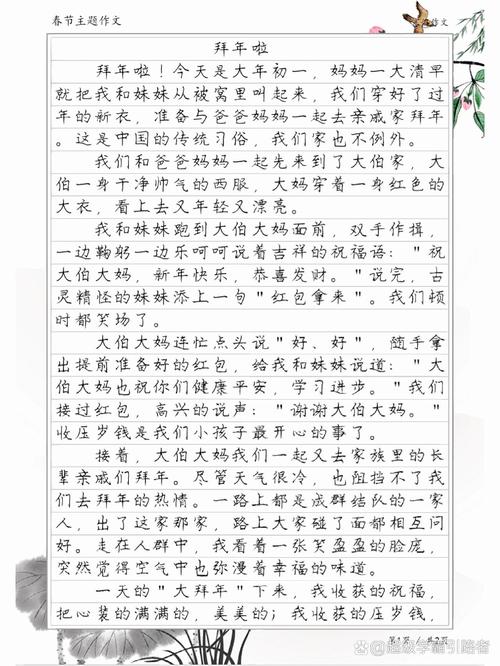 春节主题作文
作文
拜年啦
拜年啦！今天是大年初一，妈妈一大清早
就把我和妹妹从被窝里叫起来，我们穿好了过
年的新衣，准备与爸爸妈妈一起去亲戚家拜
年。这是中国的传统习俗，我们家也不例外。
我们和爸爸妈妈一起先来到了大伯家，大
伯一身干净帅气的西服，大妈穿着一身红色的
大衣，看上去又年轻又漂亮。
我和妹妹跑到大伯大妈面前，双手作揖，
一边鞠躬一边乐呵呵说着吉祥的祝福语："祝
大伯大妈，新年快乐，恭喜发财。"说完，古
灵精怪的妹妹添上一句"红包拿来"。我们顿
时都笑场了。
大伯大妈连忙点头说"好、好"，随手拿
出提前准备好的红包，给我和妹妹说道："大
伯大妈也祝你们健康平安，学习进步。"我们
接过红包，高兴的说声："谢谢大伯大妈。"
收压岁钱是我们小孩子最开心的事了。
接着，大伯大妈我们一起又去家族里的长
辈亲戚们拜年。尽管天气很冷，也阻挡不了我
们去拜年的热情。一路上都是成群结队的一家
人，出了这家那家，路上大家碰了面都相互问
好。走在人群中，我看着一张笑盈盈的脸庞，
突然觉得空气中也弥漫着幸福的味道。
一天的"大拜年"下来，我收获的祝福，
把心装的满满的，美美的；我收获的压岁钱，
第1页 / 共2页
超级学霸引路者